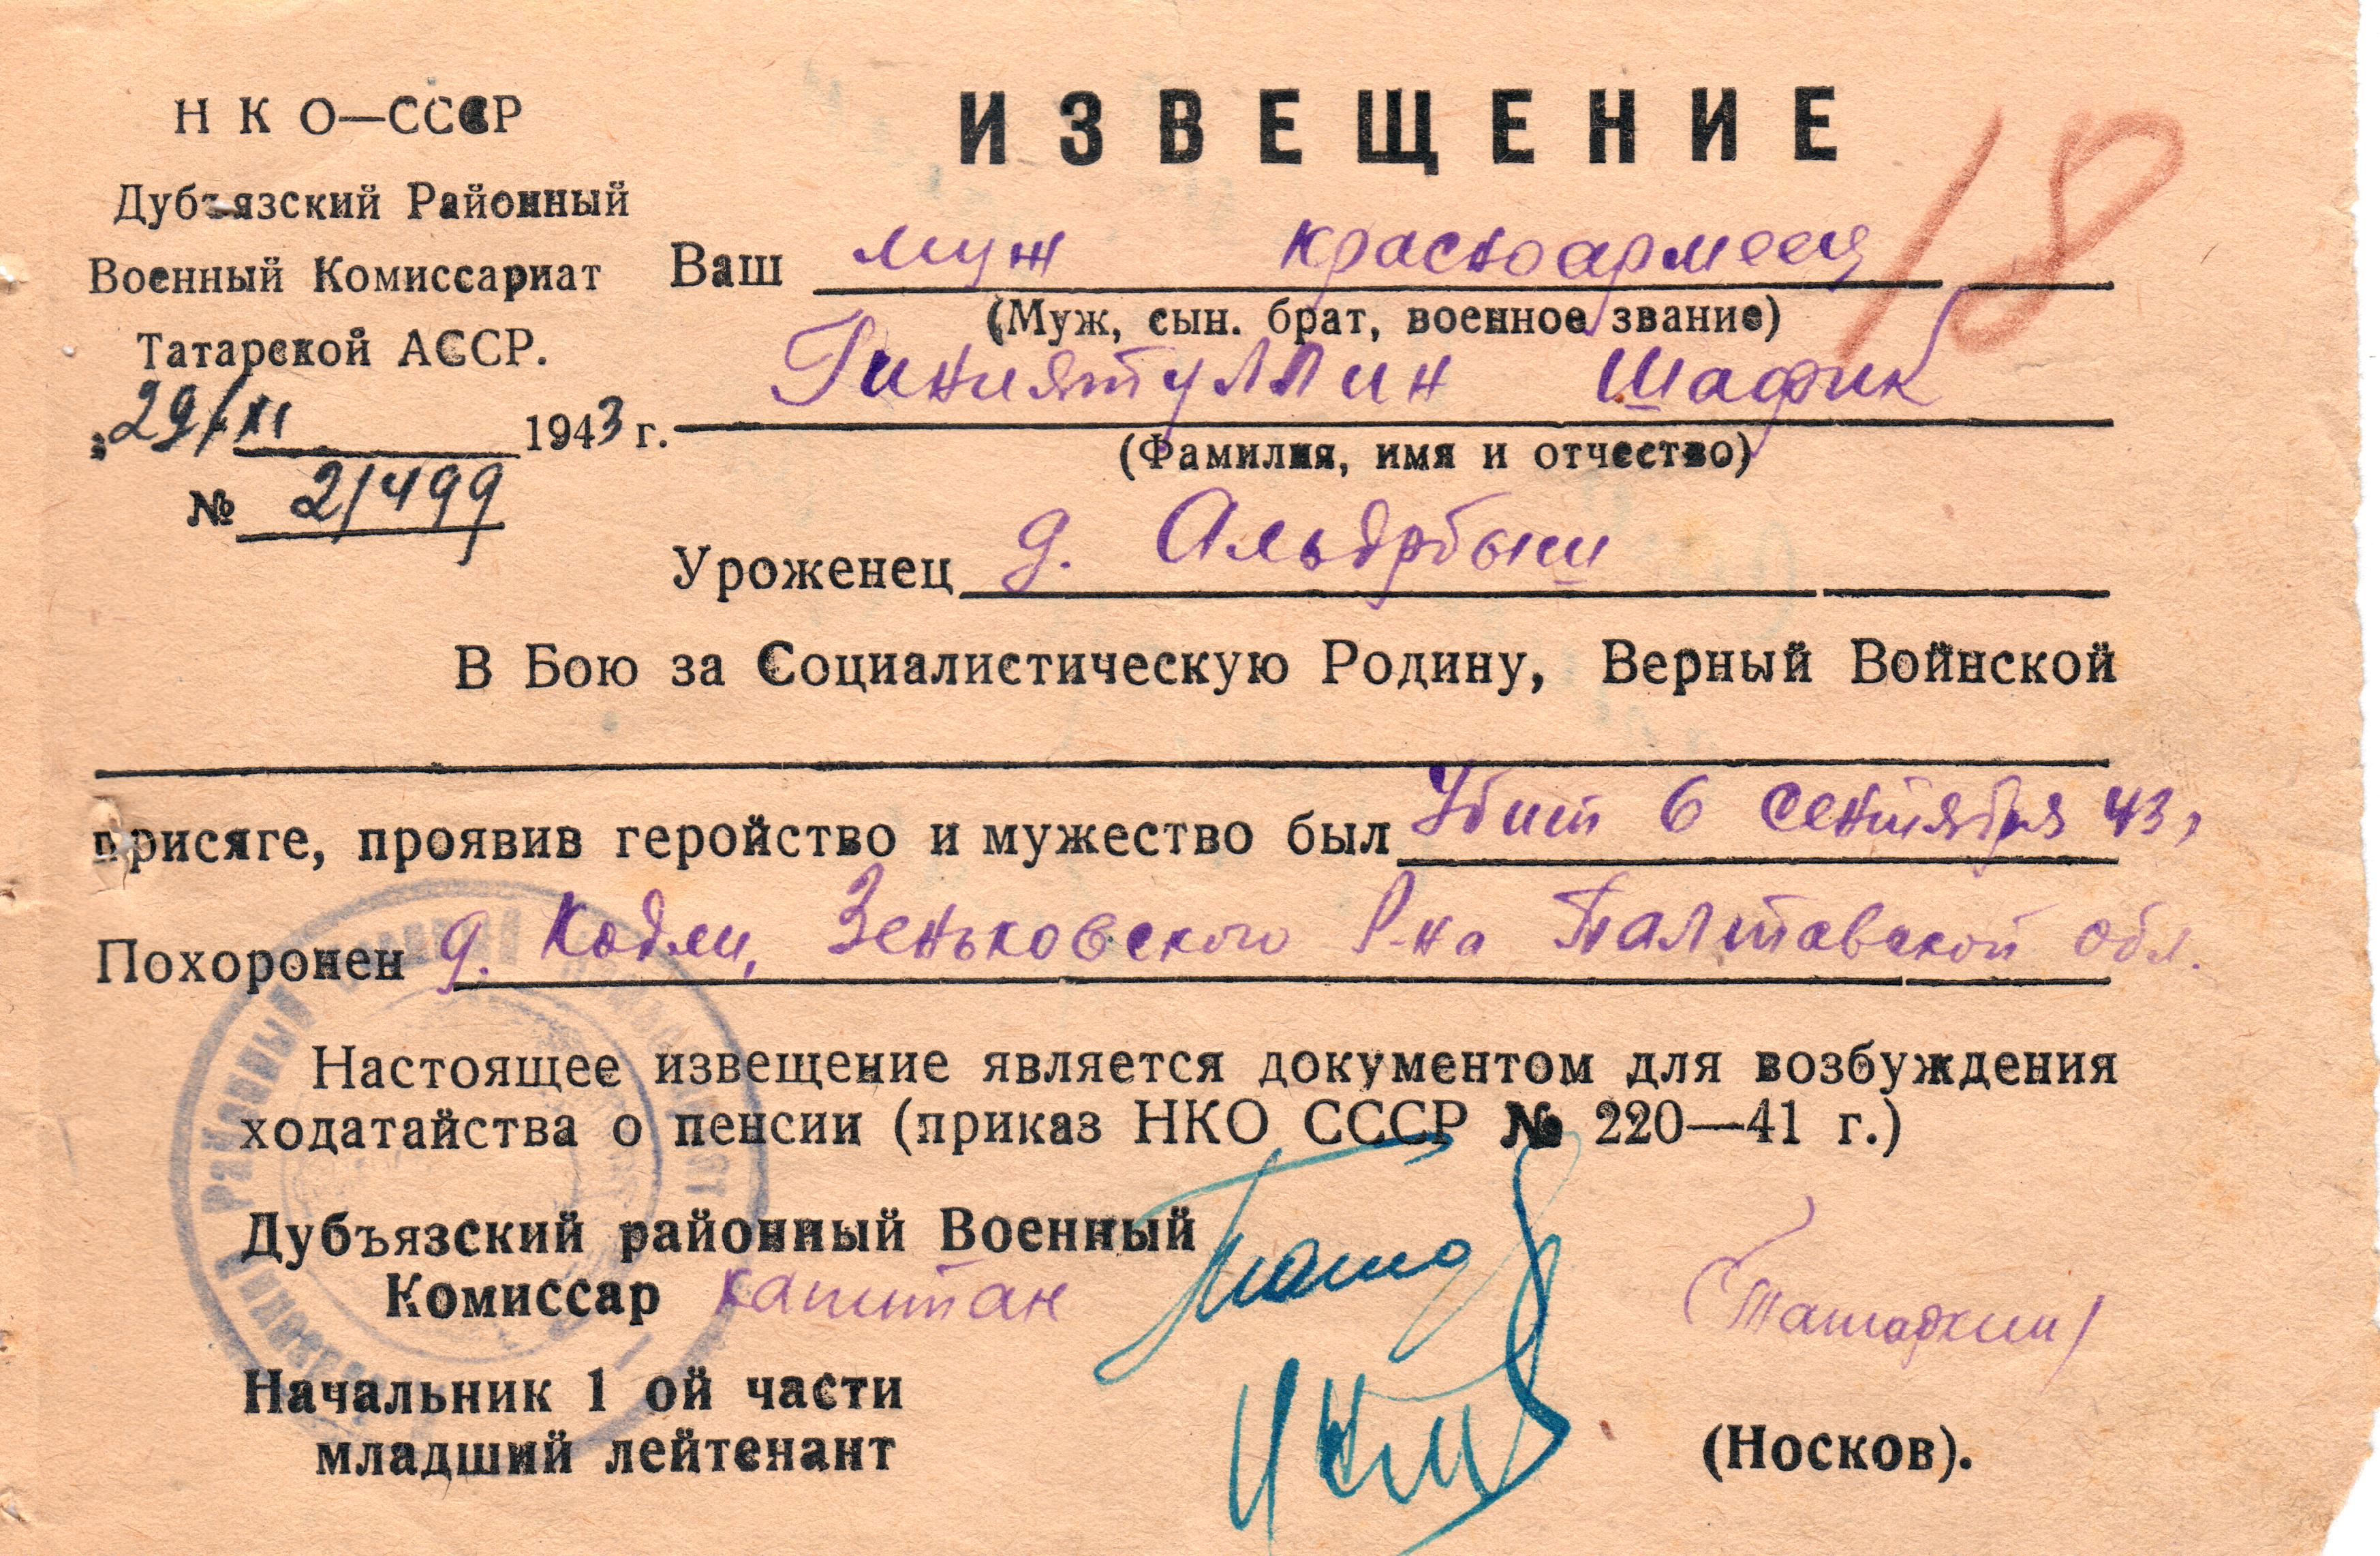 Н К О—СССР
Дубъязский Районный
Военный Комиссариат
Татарской АССР.
„29/XI 1943 г.
№ 21499
ИЗВЕЩЕНИЕ
18
Ваш муж красноармеец
(Муж, сын. брат, военное звание)
Гиниятуллин Шафик
(Фамилия, имя и отчество)
Уроженец д. Альдрбыш
В Бою за Социалистическую Родину, Верный Воинской
присяге, проявив геройство и мужество был Убит 6 сентября 43г
Похоронен д. Зеньковского Р-на Палтавской обл.
Настоящее извещение является документом для возбуждения
ходатайства о пенсии (приказ НКО СССР № 220—41 г.)
Дубъязский районный Военный
Комиссар капитан
Начальник 1 ой части
младший лейтенант (Носков).